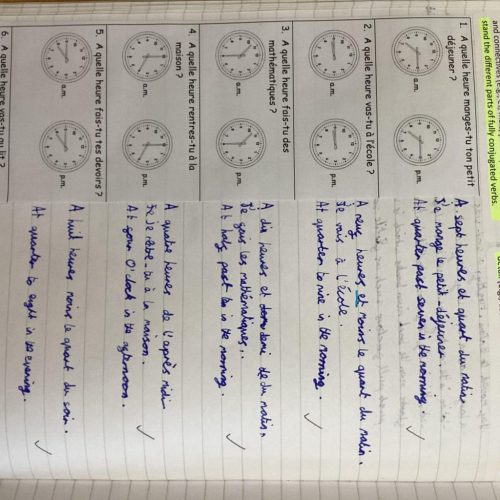 and connectives (e.g.
stand the different parts of fully conjugated verbs.
1. A quelle heure manges-tu ton petit
déjeuner ?
a.m.
p.m.
A sept heures et quart du matin
Je mange le petit-déjeuner.
At quarter past seven in the morning.
2. A quelle heure vas-tu à l'école ?
a.m.
p.m.
A neuf heures et moins le quart du matin.
Je vais à l'école.
At quarter to nine in the morning.
3. A quelle heure fais-tu des
mathématiques ?
a.m.
p.m.
A dix heures et demi de du matin.
Je fais les mathématiques.
At half past ten in the morning.
4. A quelle heure rentres-tu à la
maison ?
a.m.
p.m.
A quatre heures de l'après midi
à la maison.
At four O'clock in the afternoon.
5. A quelle heure fais-tu tes devoirs ?
a.m.
p.m.
A huit heures moins le quart du soir.
At quarter to eight in the evening.
6. A quelle heure vas-tu au lit ?